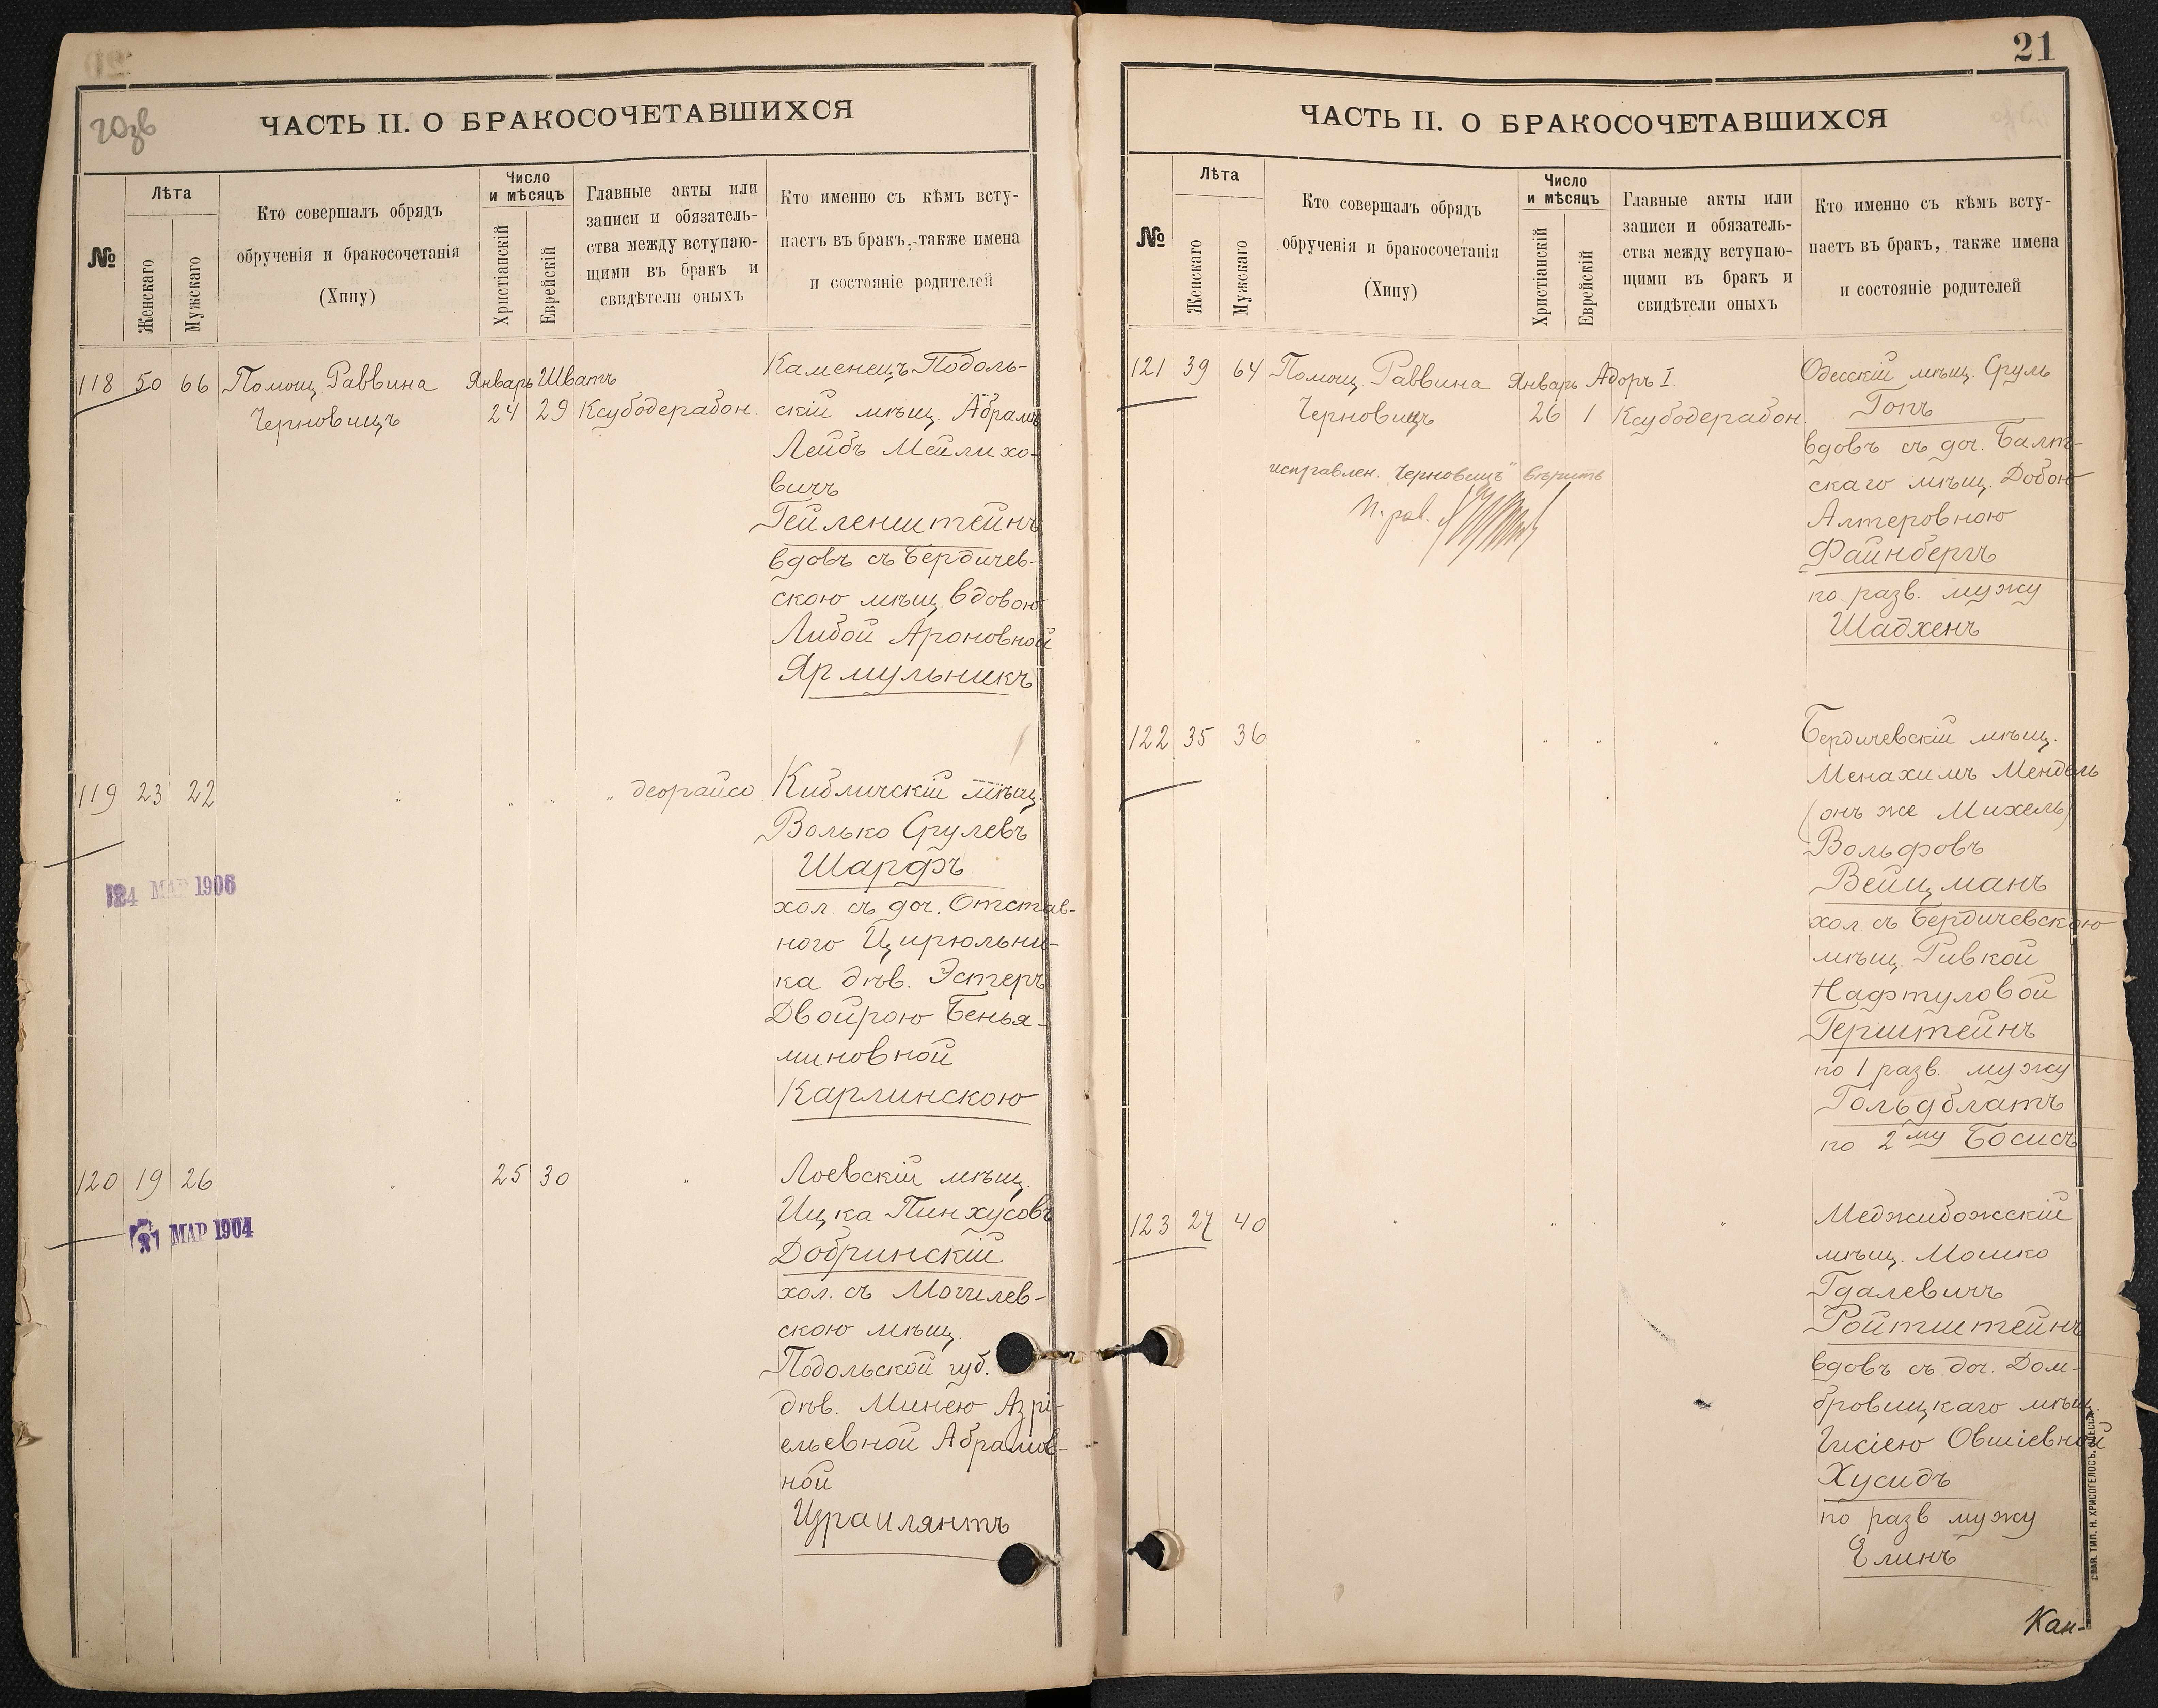 20зв
ЧАСТЬ II. О БРАКОСОЧЕТАВШИХСЯ
№
Лѣта
Женскаго
Мужскаго
Кто совершалъ обрядъ
обрученія и бракосочетанія
(Хипу)
Число
и мѣсяцъ
Христіанскій
Еврейскій
Главные акты или
записи и обязатель-
ства между вступаю-
щими въ бракъ и
свидѣтели оныхъ
Кто именно съ кѣмъ всту-
паетъ въ бракъ, также имена
и состояніе родителей
118 50 66 Помощ. Раввина Январь Шватъ
Черновицъ 24 29 Ксубодерабон.
Каменецъ-Подоль-
скій мѣщ. Абрамъ
Лейбъ Мейлихо-
вичъ
Гейленштейнъ
вдовъ съ Бердичев-
скою мѣщ. вдовою
Либой Ароновной
Ярмульникъ
119 23 22 " " " " деорайсо
Кибличскій мѣщ.
Волько Срулевъ
Шарфъ
хол. съ доч. Отстав-
ного Цирюльни-
ка дѣв. Эстеръ
Двойрою Бенья-
миновной
Карлинскою
24 МАР 1906
120 19 26 " 25 30 "
Лоевскій мѣщ.
Ицка Пинхусовъ
Добринскій
хол. съ Могилев-
скою мѣщ.
Подольской губ.
дѣв. Минею Азрі-
ельевной Абрамов-
ной
Израилянтъ
МАР 1904
21
ЧАСТЬ II. О БРАКОСОЧЕТАВШИХСЯ
№
Лѣта
Женскаго
Мужскаго
Кто совершалъ обрядъ
обрученія и бракосочетанія
(Хипу)
Число
и мѣсяцъ
Христіанскій
Еврейскій
Главные акты или
записи и обязатель-
ства между вступаю-
щими въ бракъ и
свидѣтели оныхъ
Кто именно съ кѣмъ всту-
паетъ въ бракъ, также имена
и состояніе родителей
121 39 64 Помощ. Раввина Январь Адоръ I.
Черновицъ 26 1 Ксубодерабон.
исправлен. Черновицъ" вѣрить
П. рав.
Одесскій мѣщ. Сруль
Гопъ
вдовъ съ доч. Балт-
скаго мѣщ. Добою
Алтеровною
Файнбергъ
по разв. мужу
Шадхенъ
122 35 36 " " " "
Бердичевскій мѣщ.
Менахимъ Мендель
(онъ же Михель)
Вольфовъ
Вейцманъ
хол. съ Бердичевскою
мѣщ. Ривкой
Нафтуловой
Герштейнъ
по 1 разв. мужу
Гольдблатъ
по 2му Босисъ
123 27 40 " " "
Меджибожскій
мѣщ. Мошко
Гдалевичъ
Ройтштейнъ
вдовъ съ доч. Дом-
бровицкаго мѣщ.
Гисіею Овшіевной
Хусидъ
по разв мужу
Елинъ
Кан-
СЛАВ. ТИП. Н. ХРИСОГЕЛОСЪ, ОДЕССА.